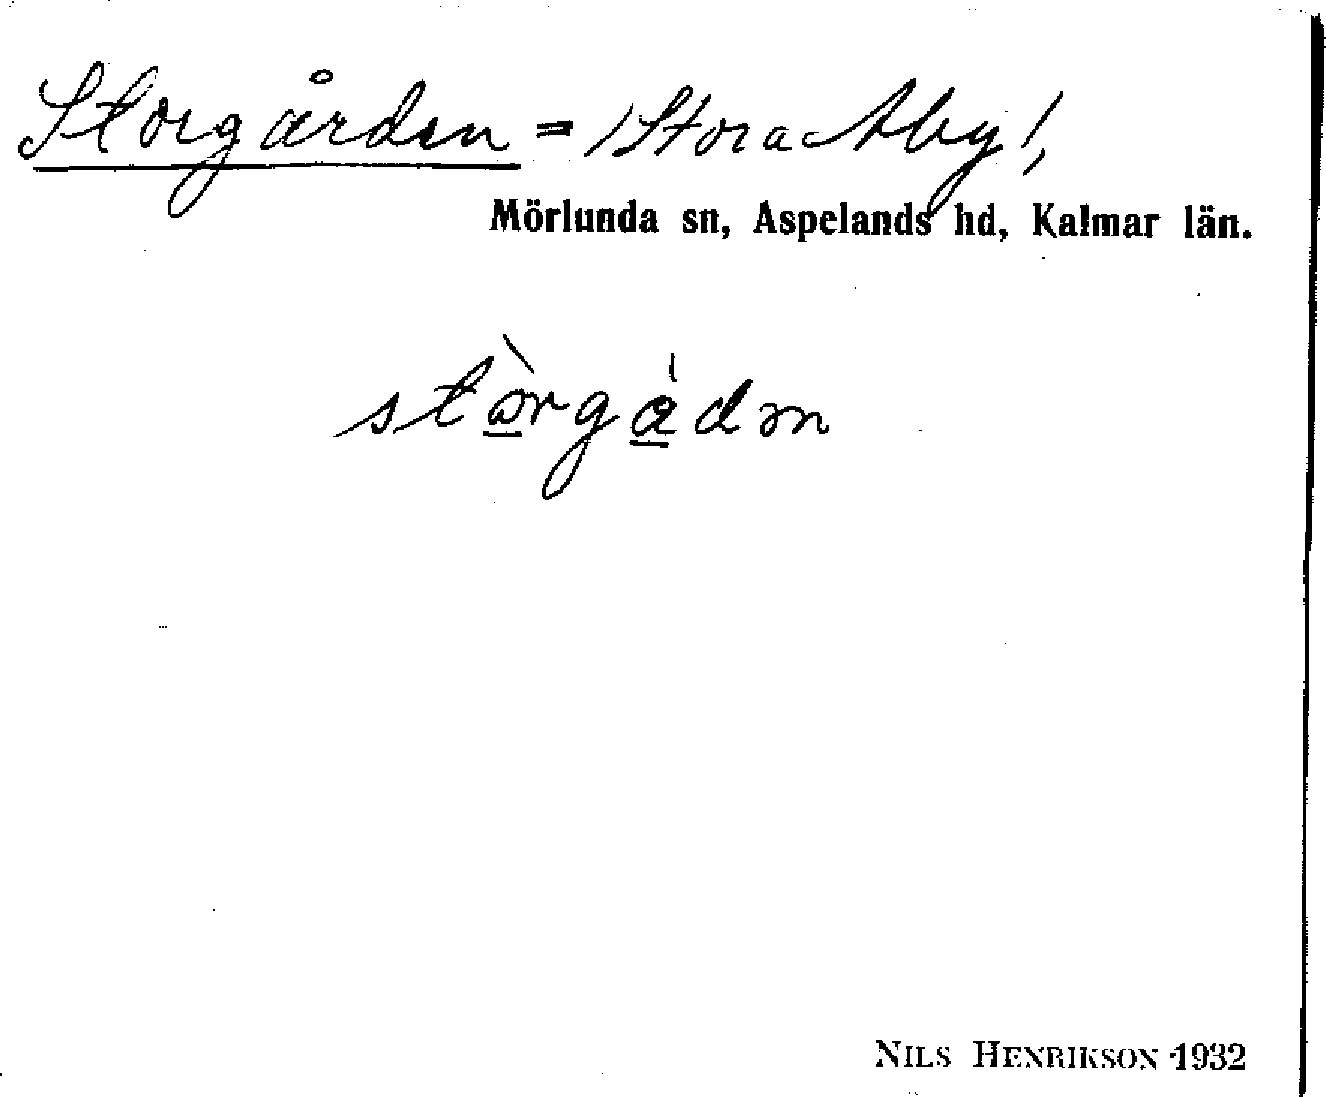 Storgården = /Stora Aby/,
Mörlunda sn, Aspelands hd, Kalmar län.
stòrgådən
NILS HENRIKSON 1932